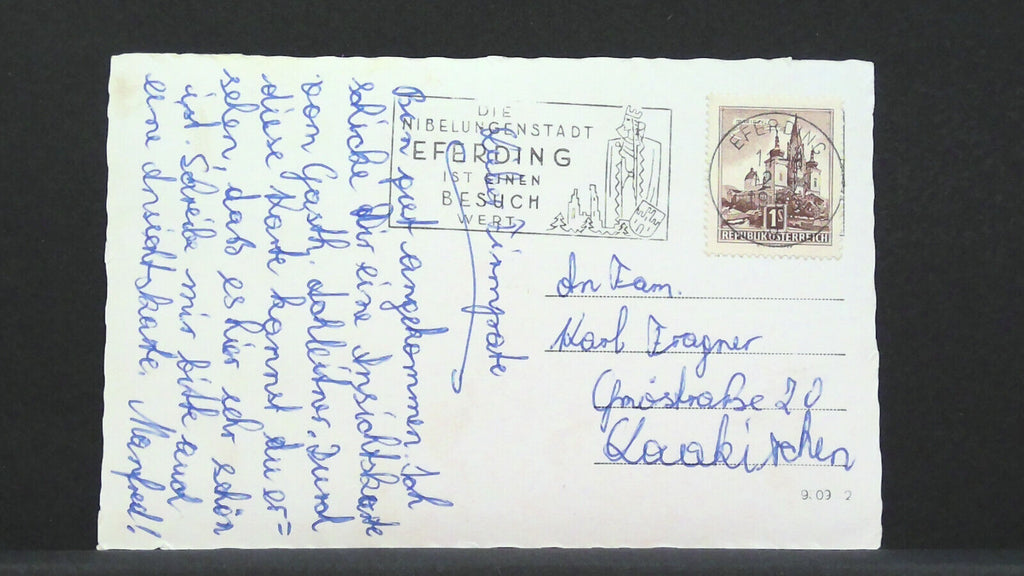 DIE
NIBELUNGENSTADT
EFERDING
IST EINEN
BESUCH
WERT
EFERDING
1S
REPUBLIK ÖSTERREICH
Bin gut angekommen. Ich
schicke Dir eine Ansichtskarte
vom Gasth. Dahleitner. Durch
diese Karte kannst du er=
sehen, dass es hier sehr schön
ist. Schreibe mir bitte auch
eine Ansichtskarte. Manfred!
An Fam.
Karl Fragner
20
Laakirchen
9.09 2